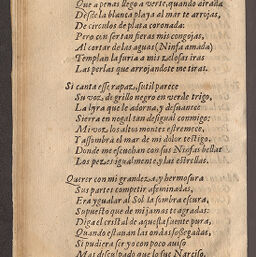 Que a penas llego a verte, quando ayrada
Desde la blanca playa al mar te arrojas,
De circulos de plata coronada:
Pero con ser tan fieras mis congojas,
Al cortar de las aguas (Ninfa amada)
Templan la furia a mis zelosas iras
Las perlas que arrojandote me tiras.
Si canta esse rapaz, sutil parece
Su voz, de grillo negro en verde trigo,
La lyra que le adorna, y desuanece
Sierra en nogal tan desigual conmigo:
Mi voz los altos montes estremece,
Y assombra el mar de mi dolor testigo.
Donde me escuchan con sus Ninfas bellas
Los pezes igualmente, y las estrellas.
Querer con mi grandeza, y hermosura
Sus partes competir afeminadas,
Era ygualar al Sol la sombra escura,
Supuesto que de mi jamas te agradas:
Diga el cristal de aquesta fuente pura,
Quando estauan las ondas sossegadas,
Si pudiera ser yo con poco auiso
Mas disculpado que los fue Narciso.